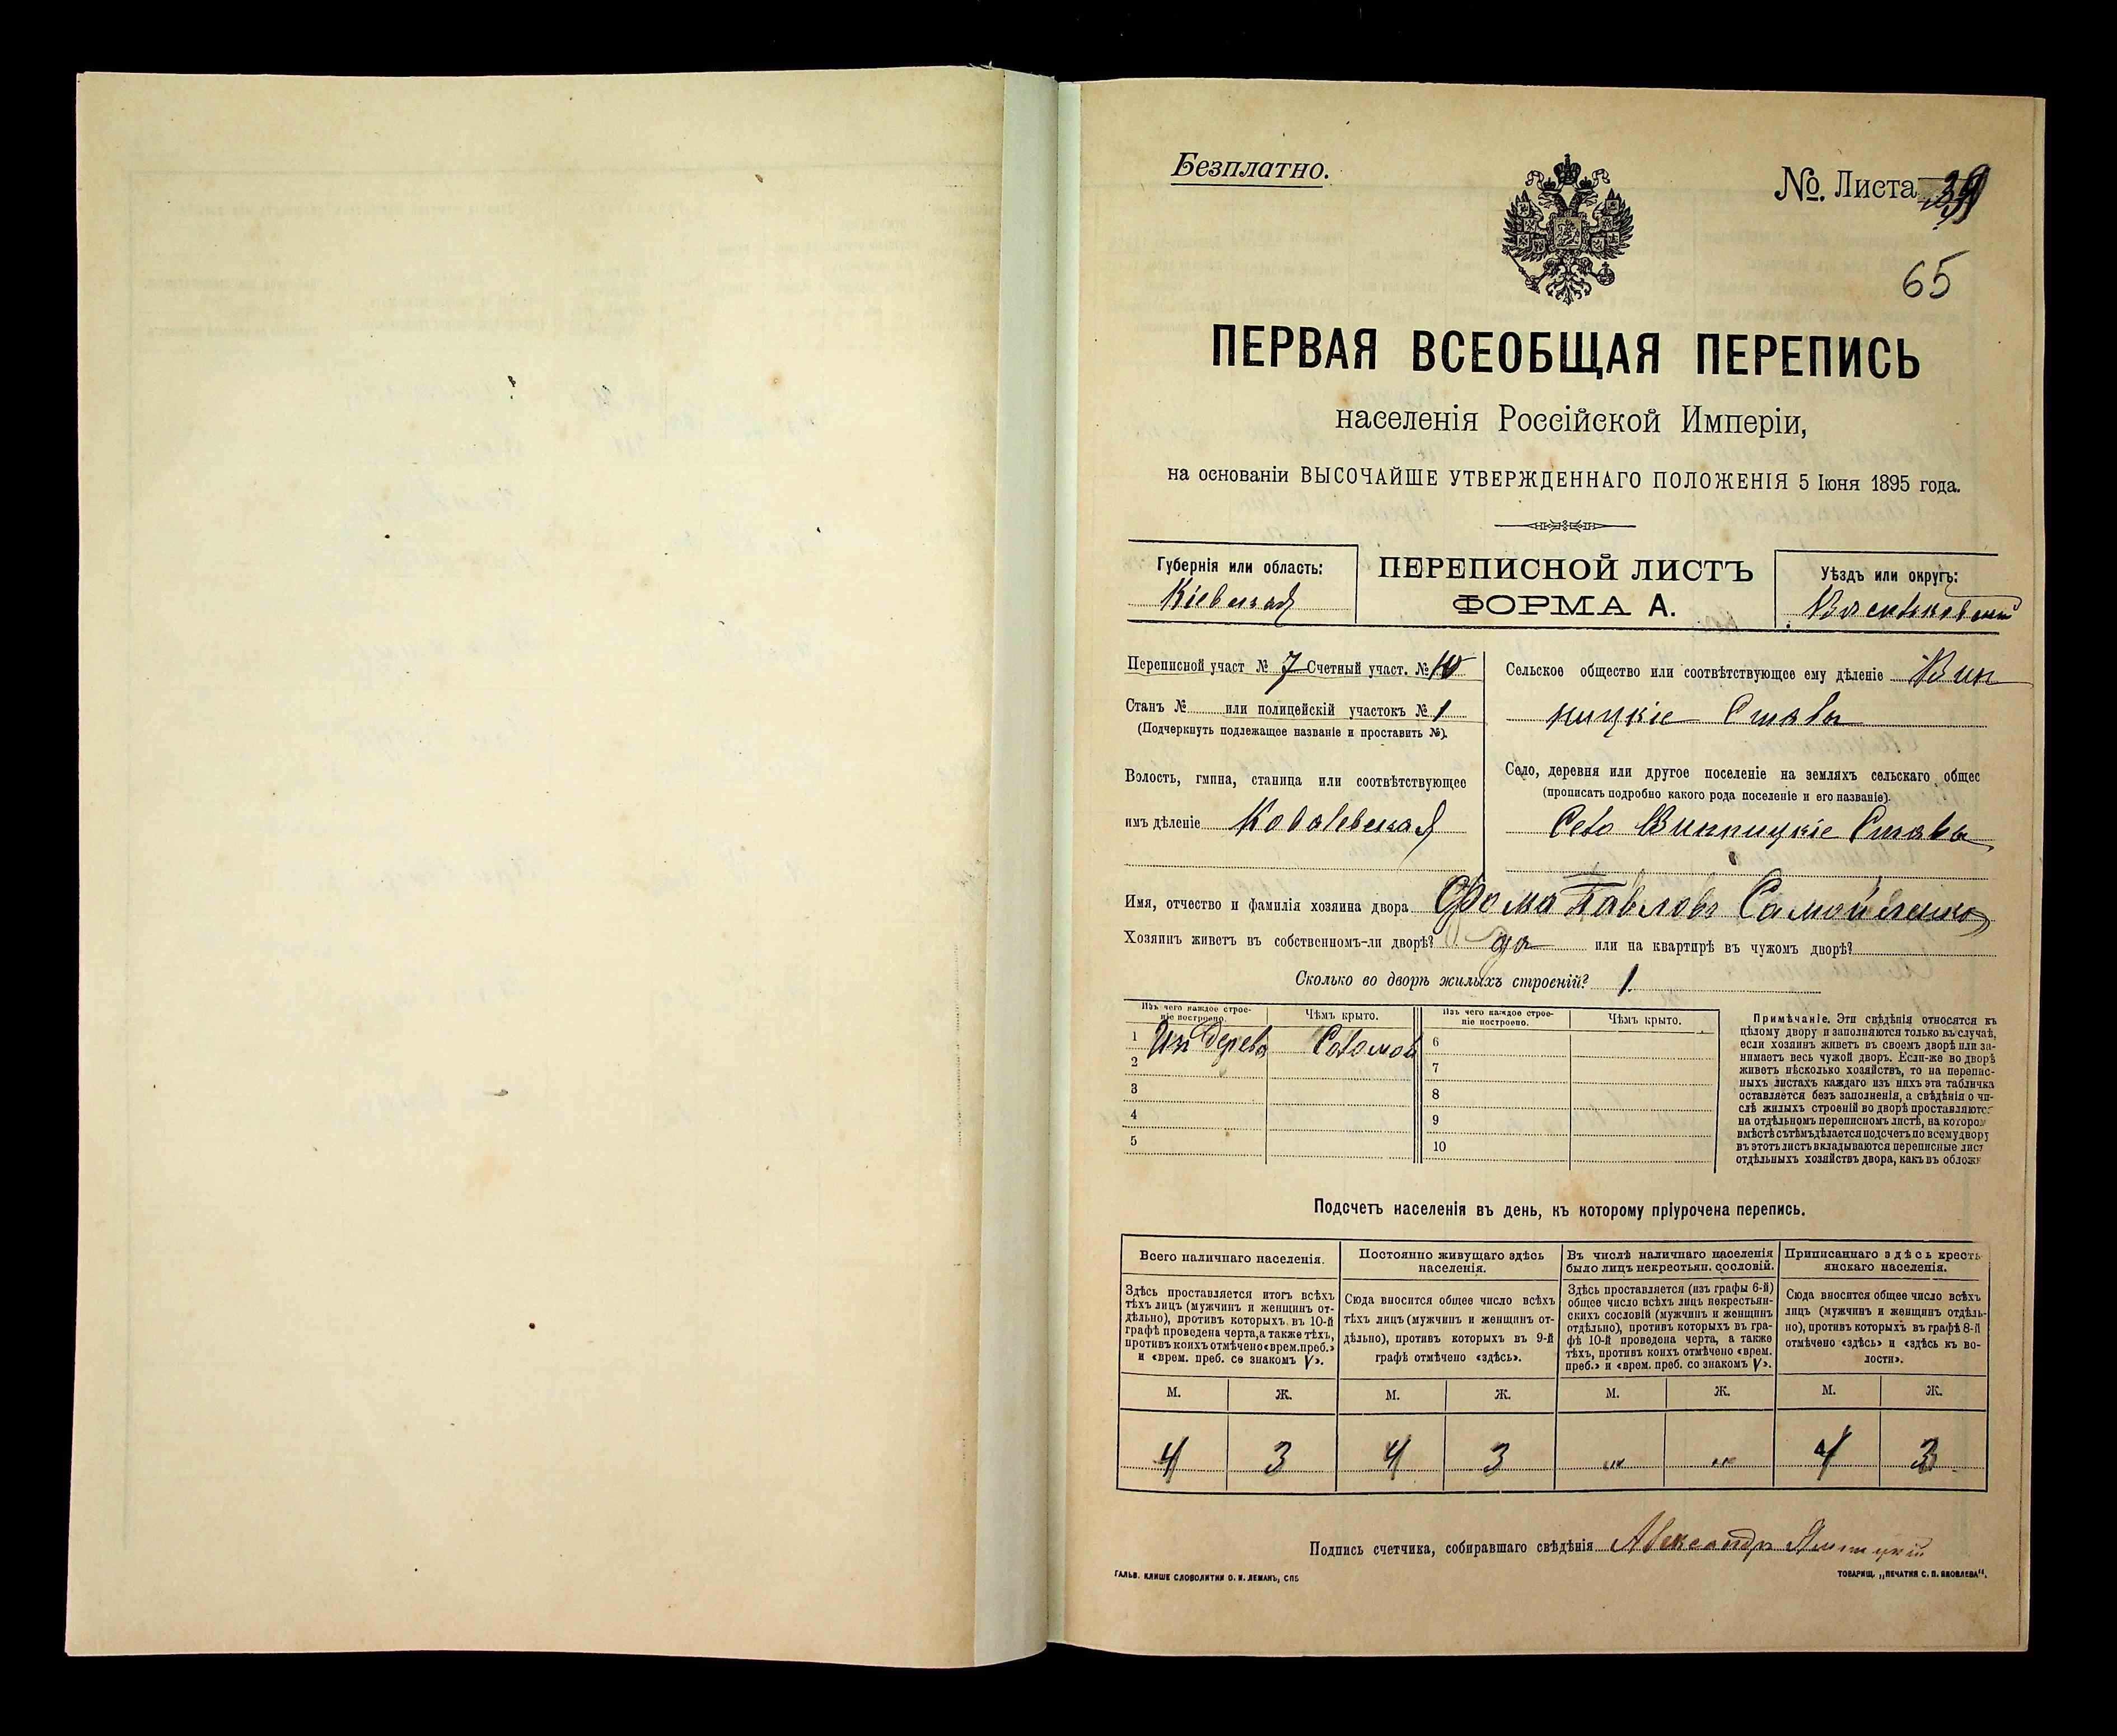 Безплатно.
№ Листа
65
ПЕРВАЯ ВСЕОБЩАЯ ПЕРЕПИСЬ
населенія Россійской Имперіи,
на основаніи ВЫСОЧАЙШЕ УТВЕРЖДЕННАГО ПОЛОЖЕНІЯ 5 Іюня 1895 года.
Губернія или область:
Кіевская
ПЕРЕПИСНОЙ ЛИСТЪ
ФОРМА А.
Уѣздъ или округъ:
Васильковскій
Переписной участ № 7 Счетный участ. № 10
Станъ № или полицейскій участокъ № 1
(Подчеркнуть подлежащее названіе и проставить №).
Волость, гмина, станица или соотвѣтствующее
имъ дѣленіе Ковалевская
Сельское общество или соотвѣтствующее ему дѣленіе Вин
ницкіе Ставы
Село, деревня или другое поселеніе на земляхъ сельскаго общес
(прописать подробно какого рода поселеніе и его названіе).
Село Винницкіе Ставы
Имя, отчество и фамилія хозяина двора Фома Павловъ Самойленко
Хозяинъ живетъ въ собственномъ-ли дворѣ? да или на квартирѣ въ чужомъ дворѣ?
Сколько во дворѣ жилыхъ строеній? 1.
Изъ чего каждое строе-
ніе построено.
Чѣмъ крыто.
1 Изъ дерева Соломой
2
3
4
5
Изъ чего каждое строе-
ніе построено.
Чѣмъ крыто.
6
7
8
9
10
Примѣчаніе. Эти свѣдѣнія относятся къ
цѣлому двору и заполняются только въ случаѣ,
если хозяинъ живетъ въ своемъ дворѣ или за-
нимаетъ весь чужой дворъ. Если-же во дворѣ
живетъ нѣсколько хозяйствъ, то на перепис-
ныхъ листахъ каждаго изъ нихъ эта табличка
оставляется безъ заполненія, а свѣдѣнія о чи-
слѣ жилыхъ строеній во дворѣ проставляютс
на отдѣльномъ переписномъ листѣ, на которо
вмѣстѣ съ тѣмъ дѣлается подсчетъ по всему двору
въ этотъ листъ вкладываются переписные лист
отдѣльныхъ хозяйствъ двора, какъ въ обложк
Подсчетъ населенія въ день, къ которому пріурочена перепись.
Всего наличнаго населенія.
Здѣсь проставляется итогъ всѣхъ
тѣхъ лицъ (мужчинъ и женщинъ от-
дѣльно), противъ которыхъ въ 10-й
графѣ проведена черта, а также тѣхъ,
противъ коихъ отмѣчено «врем. преб.»
и «врем. преб. со знакомъ V».
Постоянно живущаго здѣсь
населенія.
Сюда вносится общее число всѣхъ
тѣхъ лицъ (мужчинъ и женщинъ от-
дѣльно), противъ которыхъ въ 9-й
графѣ отмѣчено «здѣсь».
Въ числѣ наличнаго населенія
было лицъ некрестьян. сословій.
Здѣсь проставляется (изъ графы 6-й)
общее число всѣхъ лицъ некрестьян-
скихъ сословій (мужчинъ и женщинъ
отдѣльно), противъ которыхъ въ гра-
фѣ 10-й проведена черта, а также
тѣхъ, противъ коихъ отмѣчено «врем.
преб.» и «врем. преб. со знакомъ V».
Приписаннаго здѣсь кресть-
янскаго населенія.
Сюда вносится общее число всѣхъ
лицъ (мужчинъ и женщинъ отдѣль-
но), противъ которыхъ въ графѣ 8-й
отмѣчено «здѣсь» и «здѣсь къ во-
лости».
М. Ж. М. Ж. М. Ж. М. Ж.
4 3 4 3 „ „ 4 3
Подпись счетчика, собиравшаго свѣдѣнія Александръ
ГАЛЬВ. КЛИШЕ СЛОВОЛИТНИ О. И. ЛЕМАНЪ, СПБ
ТОВАРИЩ. „ПЕЧАТНЯ С. П. ЯКОВЛЕВА“.